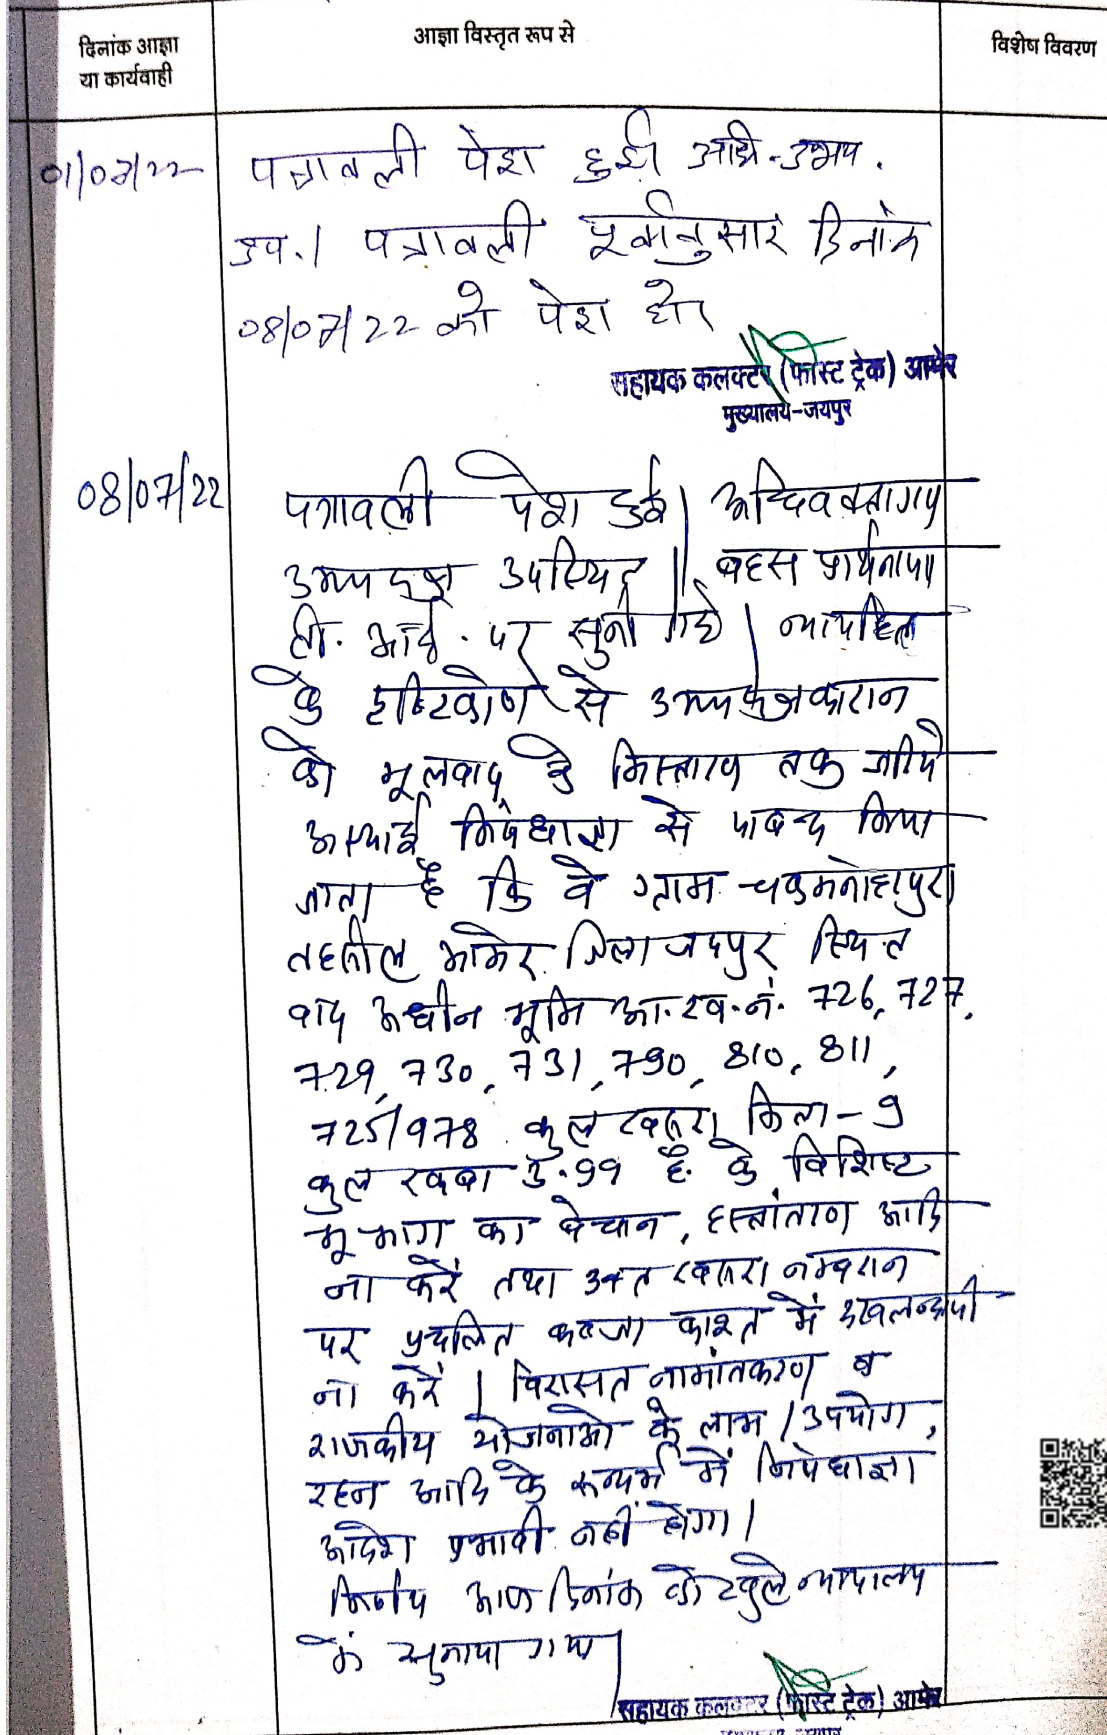 दिनांक आज्ञा
या कार्यवाही
आज्ञा विस्तृत रूप से
विशेष विवरण
01/07/22
पत्रावली पेश हुई। अधि. उभय.
उप.। पत्रावली पूर्वानुसार दिनांक
08/07/22 को पेश हो।
सहायक कलक्टर (फास्ट ट्रेक) आमेर
मुख्यालय-जयपुर
08/07/22
पत्रावली पेश हुई। अधिवक्तागण
उभयपक्ष उपस्थित। बहस प्रार्थनापत्र
टी. आई. पर सुनी गयी। न्यायहित
के दृष्टिकोण से उभयपक्षकारान
को मूलवाद के निस्तारण तक जरिये
अस्थाई निषेधाज्ञा से पाबन्द किया
जाता है कि वे ग्राम चकमनोहरपुरा
तहसील आमेर जिला जयपुर स्थित
वाद अधीन भूमि आ.ख.नं. 726, 727,
729, 730, 731, 790, 810, 811,
725/978 कुल खसरा किता - 9
कुल रकबा 3.99 है. के विशिष्ट
भू-भाग का बेचान, हस्तांतरण आदि
ना करें तथा उक्त खसरा नम्बरान
पर प्रचलित कब्जा काश्त में दखलन्दाजी
ना करें। विरासत नामांतकरण व
राजकीय योजनाओ के लाभ / उपयोग,
रहन आदि के सन्दर्भ में निषेधाज्ञा
आदेश प्रभावी नहीं होगा।
निर्णय आज दिनांक को खुले न्यायालय
में सुनाया गया।
सहायक कलक्टर (फास्ट ट्रेक) आमेर